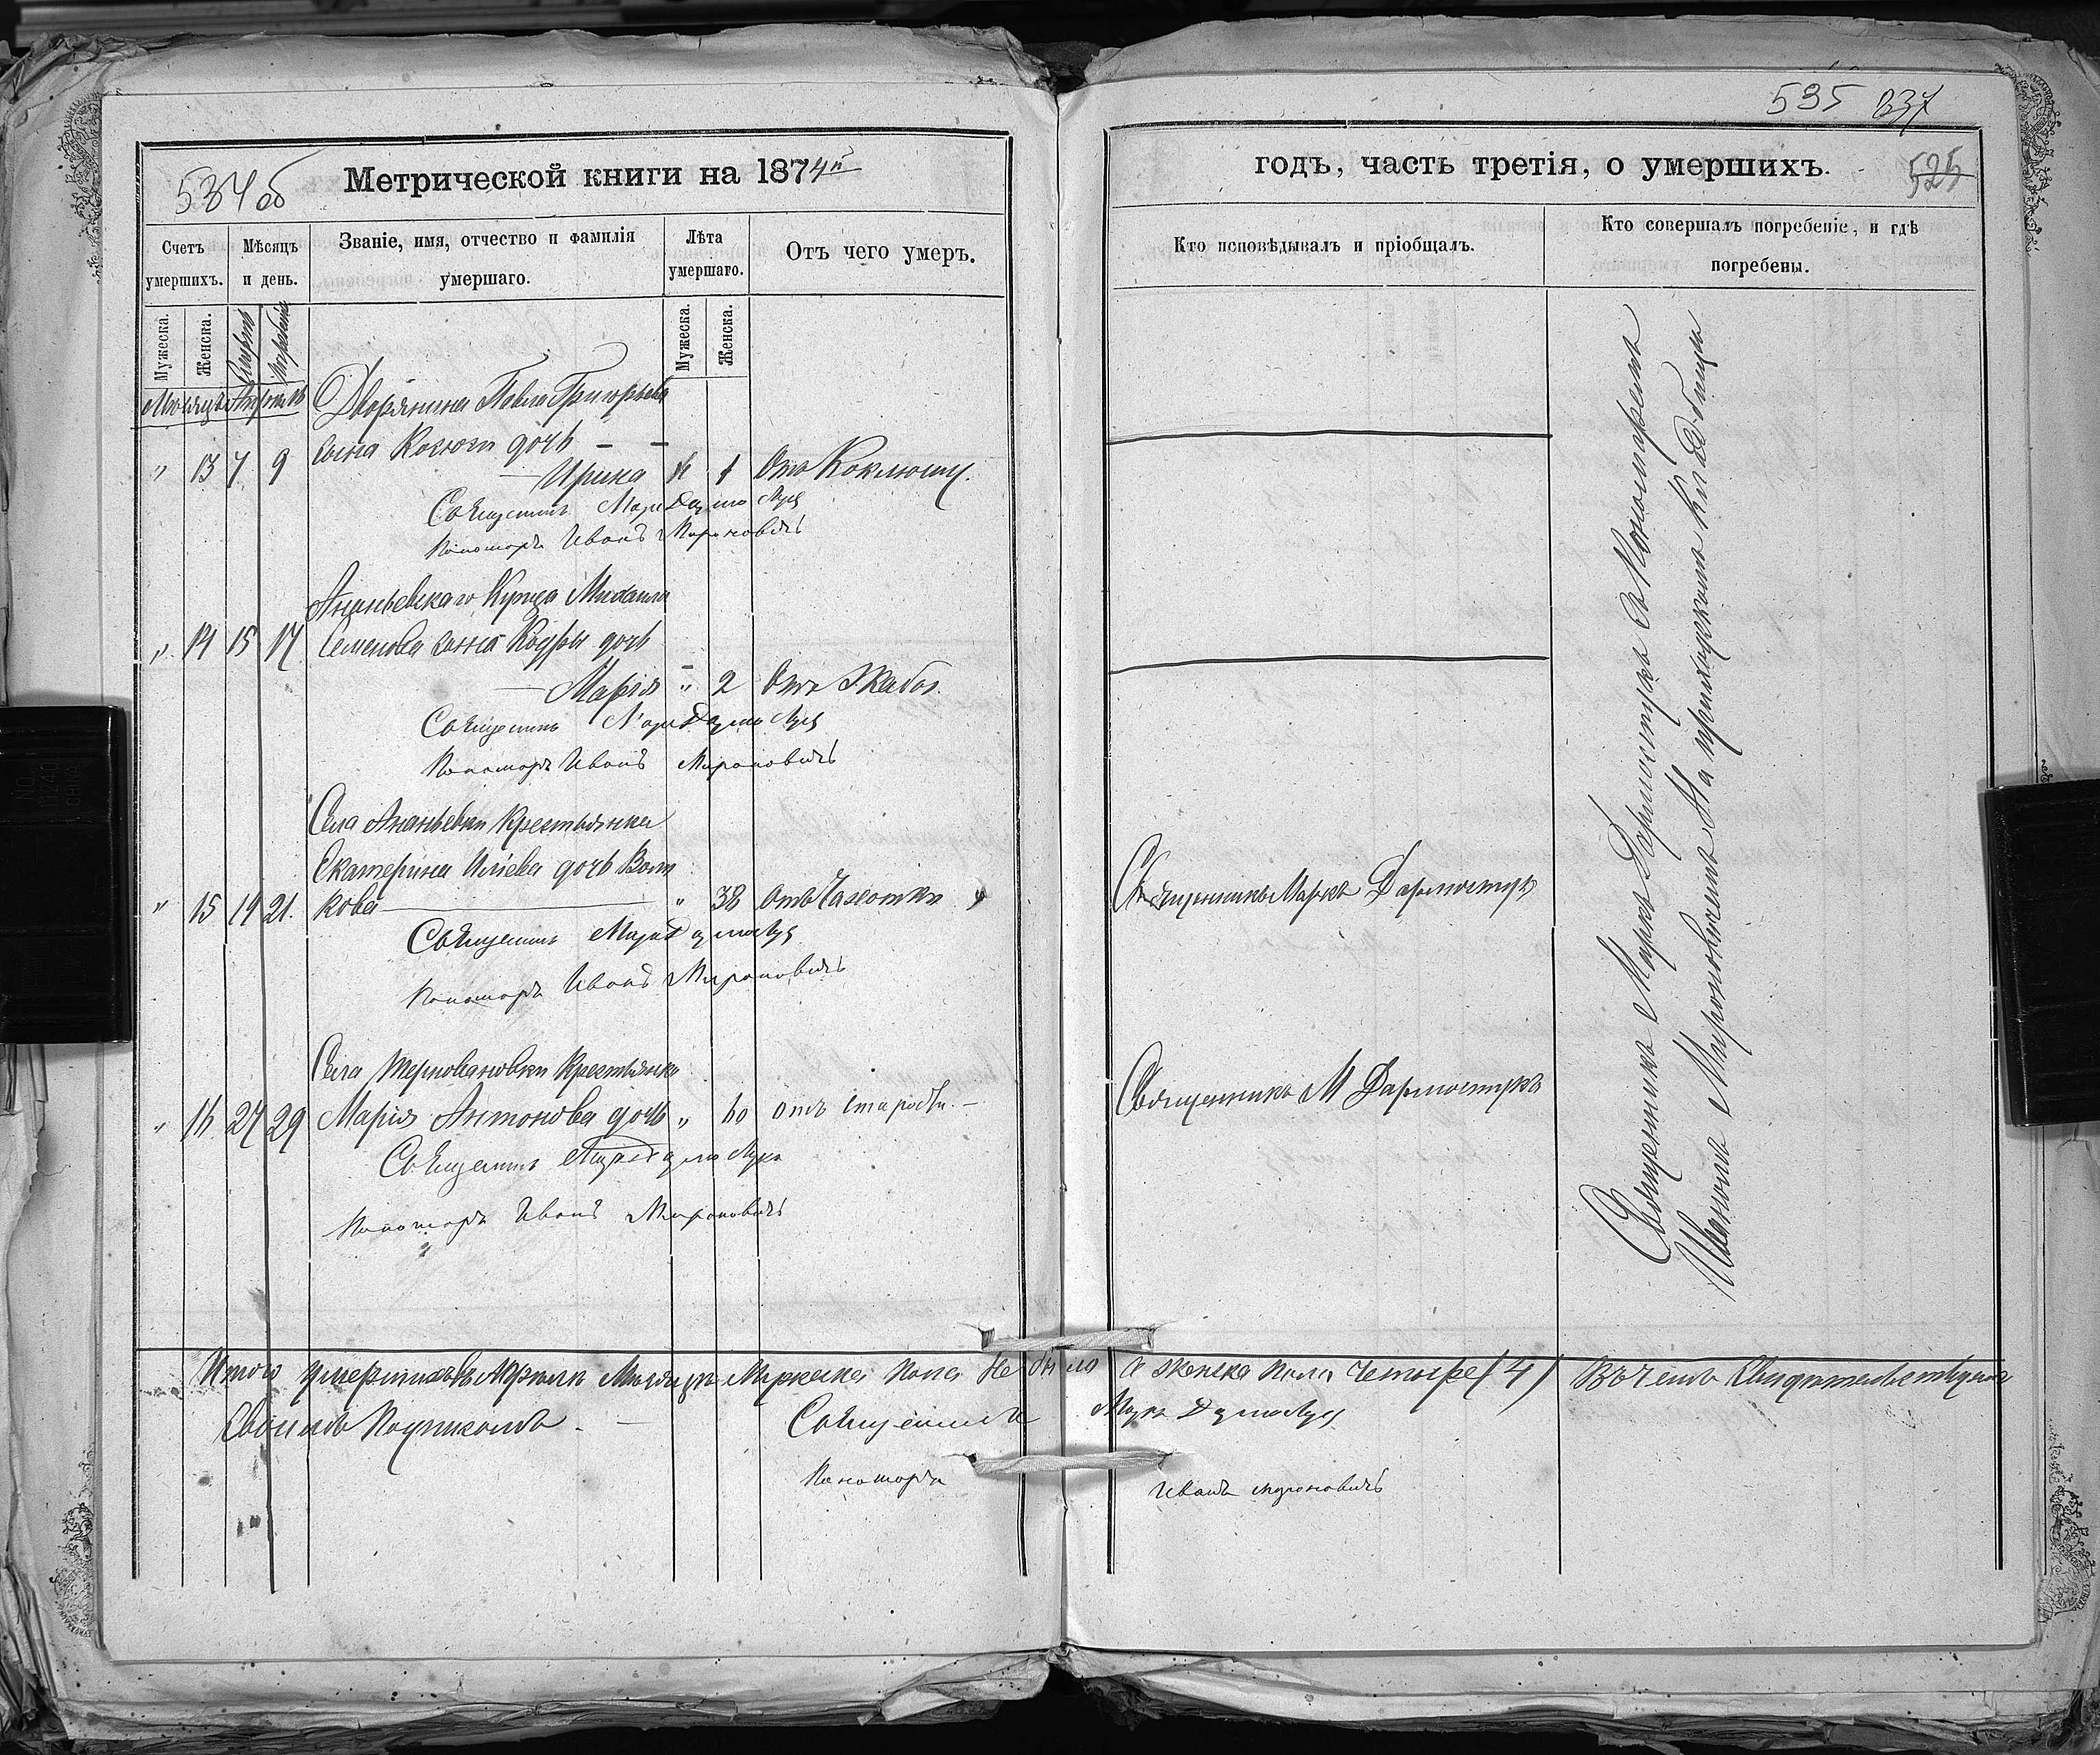 534об
Метрической книги на 1874й
Счетъ умершихъ.
Мѣсяцъ и день.
Званіе, имя, отчество и фамилія умершаго.
Лѣта умершаго.
Отъ чего умеръ.
Мужеска.
Женска.
Мужеска.
Женска.
Мѣсяцъ Апрѣль
Дворянина Павла Григорьева
сына дочь
" 13 7 9 Ирина 1 Отъ Коклюшу.
Священникъ
Пономарь Иванъ Мироновичъ
Ананьевскаго Купца Михаила
" 14 15 17 Семенова сына Кодры дочь
Марія " 2 Отъ
Священникъ
Пономарь Иванъ Мироновичъ
Села Ананьевки Крестьянка
Екатерина Иліева дочь Волч
" 15 19 21. кова " 38 отъ Чахотки
Священникъ
Пономарь Иванъ Мироновичъ
Села Терновановки Крестьянка
" 16 27 29 Марія Антонова дочь " 60 отъ старости.
Священникъ
Пономарь Иванъ Мироновичъ
Итого умершихъ въ Апрѣлѣ Мѣсяцѣ Мужеска пола не было
Священникъ
Пономарь
535 537
годъ, часть третія, о умершихъ.
525
Кто исповѣдывалъ и пріобщалъ.
Кто совершалъ погребеніе, и гдѣ погребены.
Священникъ Маркъ
Священникъ М
Священникъ Маркъ съ Пономаремъ
Иваномъ Мироновичемъ На приходскомъ Кладбищѣ
а женска пола четыре (4) Въ чемъ
Иванъ Мироновичъ